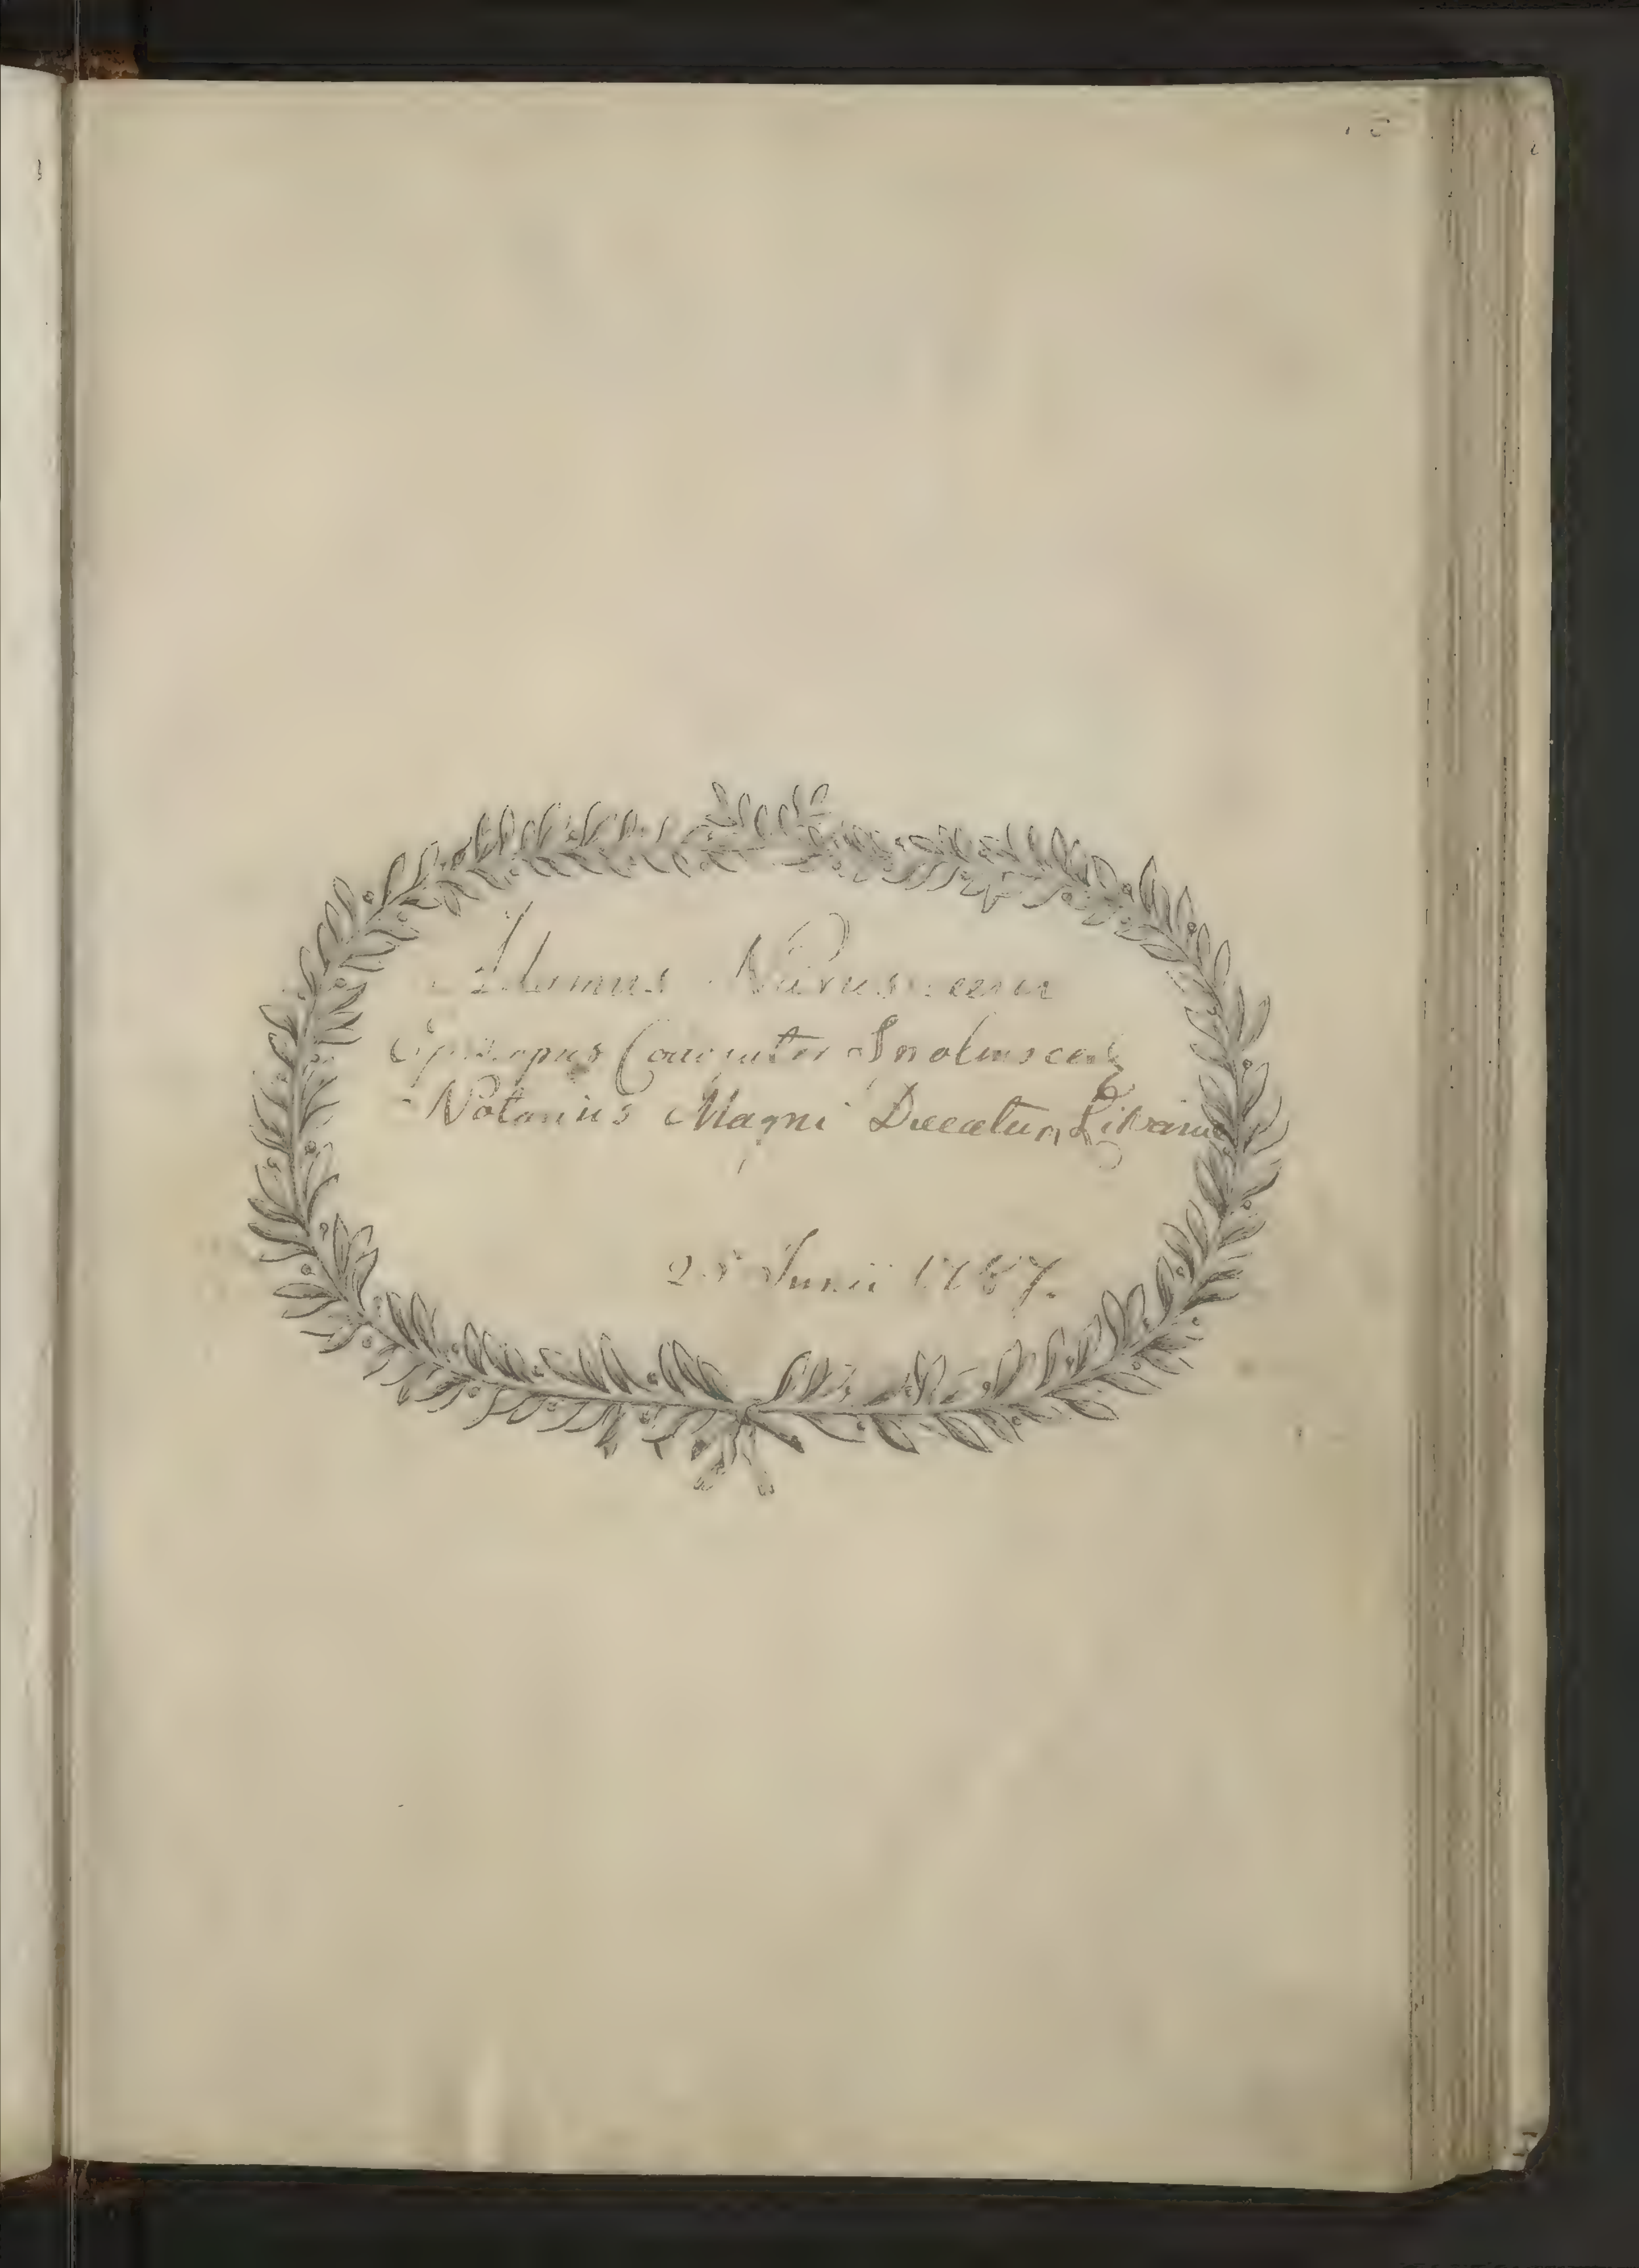 Adamus Narusze
Episcopus Coadjutor Smolensce
Notarius Magni Ducatus Litvaniæ
Junii 1787.